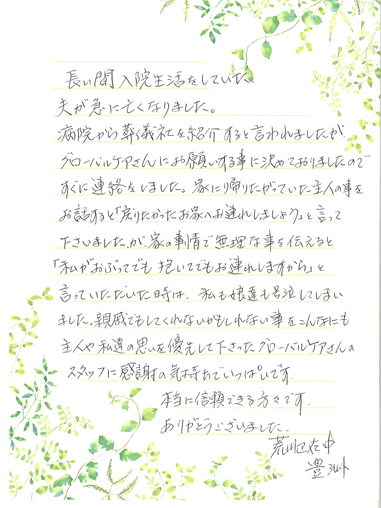 長い間入院生活をしていた
夫が急に亡くなりました。
病院から葬儀社を紹介すると言われましたが
グローバルケアさんにお願いする事に決めておりましたので
すぐに連絡をしました。家に帰りたがっていた主人の事を
お話すると「戻りたかったお家へお連れしましょう」と言って
下さいました。が、家の事情で無理な事を伝えると
「私がおぶってでも抱いてでもお連れしますから」と
言っていただいた時は、私も娘達も号泣してしまい
ました。親戚でもしてくれないかもしれない事をこんなにも
主人や私達の思いを優先して下さったグローバルケアさんの
スタッフに感謝の気持ちでいっぱいです。
本当に信頼できる方々です。
ありがとうございました。
荒川区在中
豊